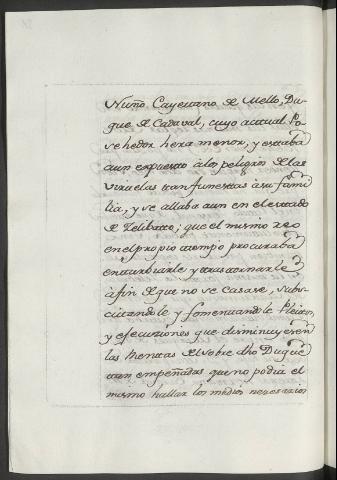 Nuño Cayetano de Mello, Du-
que de Cadaval, cuyo actual Po-
sehedor hera menor, y estaba
aun expuesto a los peligros de las
viruelas tan funestas à su fami-
lia, y se allaba aun en el estado
de Zelibato; que el mismo reo
en el propio tiempo procuraba
enturbiarle y trastornarle
à fin de que no se casase, subs-
citandole y fomentandole Pleitos,
y efecuziones que diminuyesen
las Rentas del sobre dho Duque
tan empeñadas que no podia el
mismo hallar los medios nezesarios